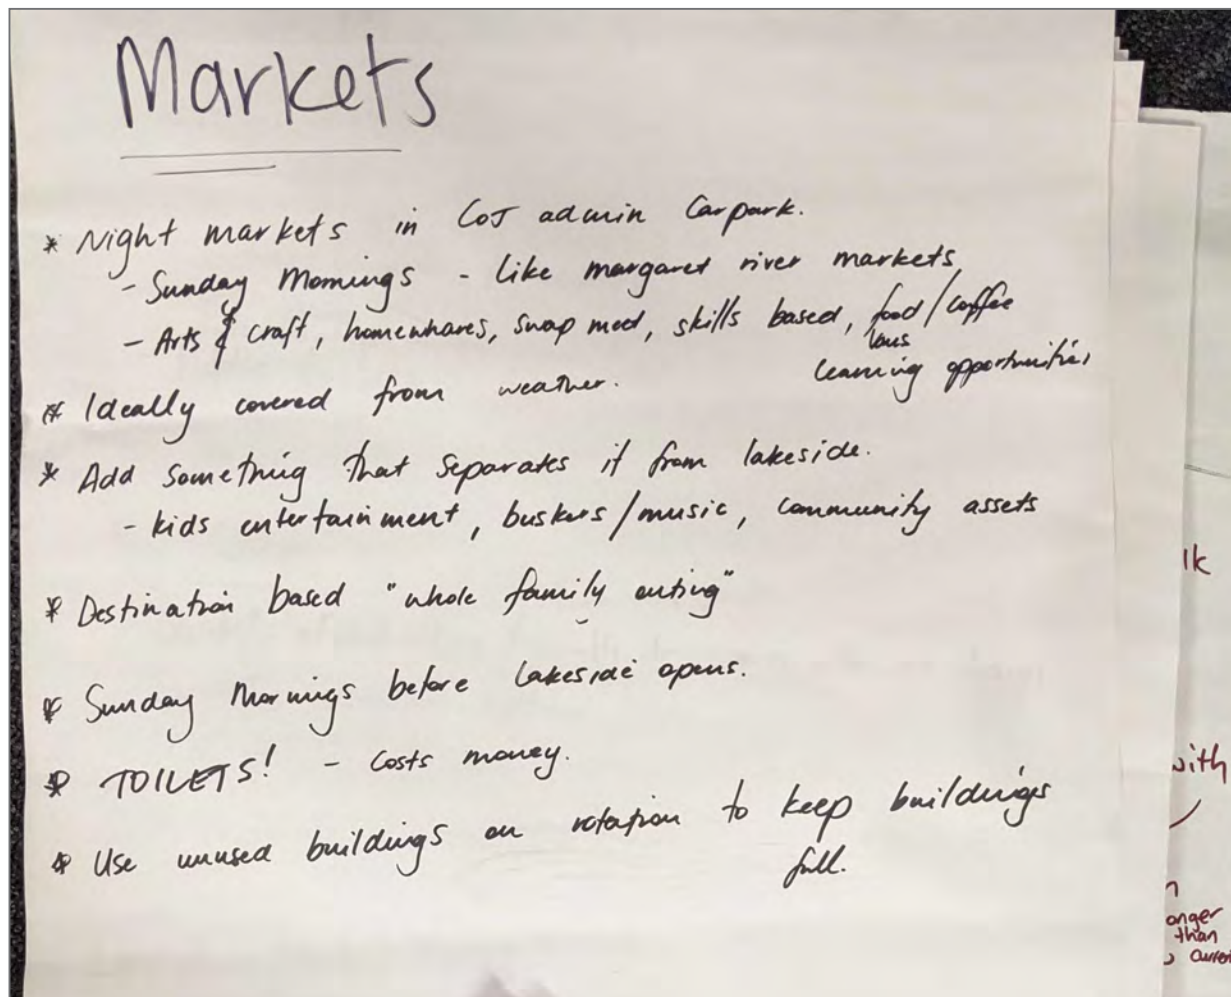 Markets
* Night markets in CoJ admin Carpark.
- Sunday Mornings - Like margaret river markets
- Arts & craft, homewhares, swap meet, skills based, food/coffee
vans
learning opportunities
* Ideally covered from weather.
* Add something that separates it from lakeside.
- kids entertainment, buskers/music, community assets
* Destination based "whole family outing"
* Sunday Mornings before Lakeside opens.
* TOILETS! - Costs money.
* Use unused buildings on rotation to keep buildings
full.
lk
with
onger
than